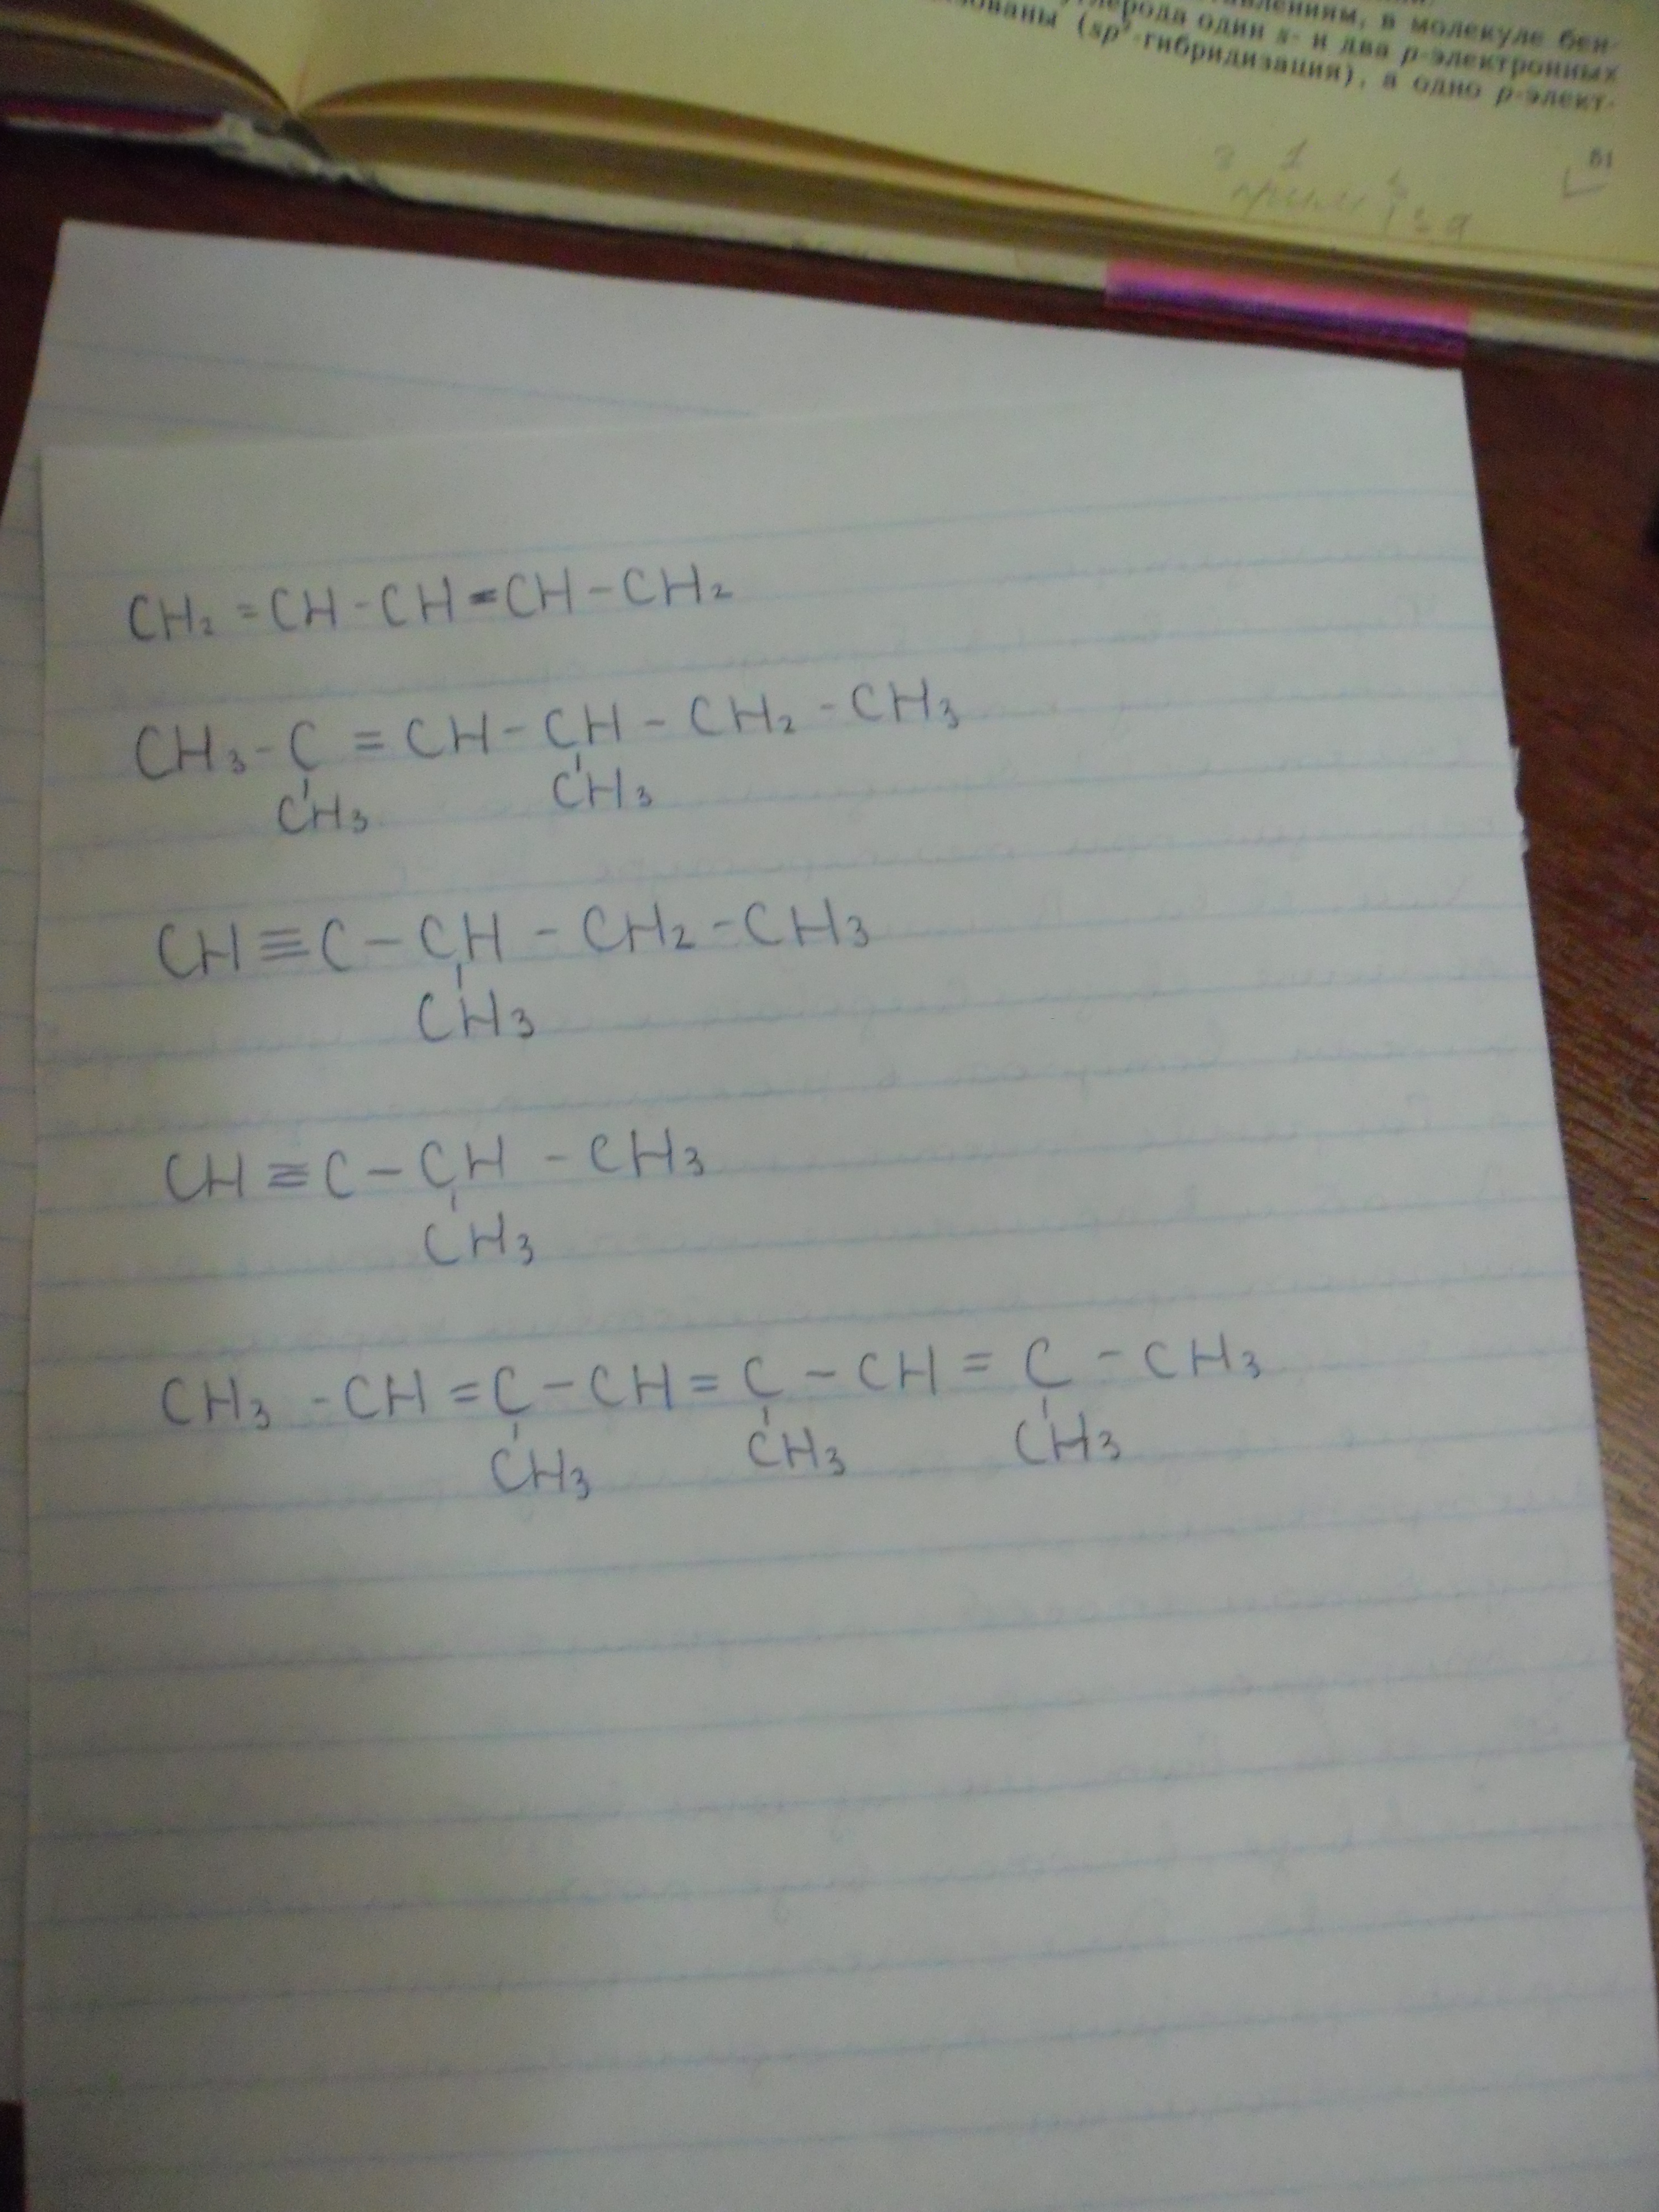 влениям, в молекуле бен-
лерода один s- и два p-электронных
зованы (sp²-гибридизация), а одно p-элект-
3 1
51
CH₂ = CH - CH = CH - CH₂
CH₃ - C = CH - CH - CH₂ - CH₃
CH₃ CH₃
CH ≡ C - CH - CH₂ - CH₃
CH₃
CH ≡ C - CH - CH₃
CH₃
CH₃ - CH = C - CH = C - CH = C - CH₃
CH₃ CH₃ CH₃